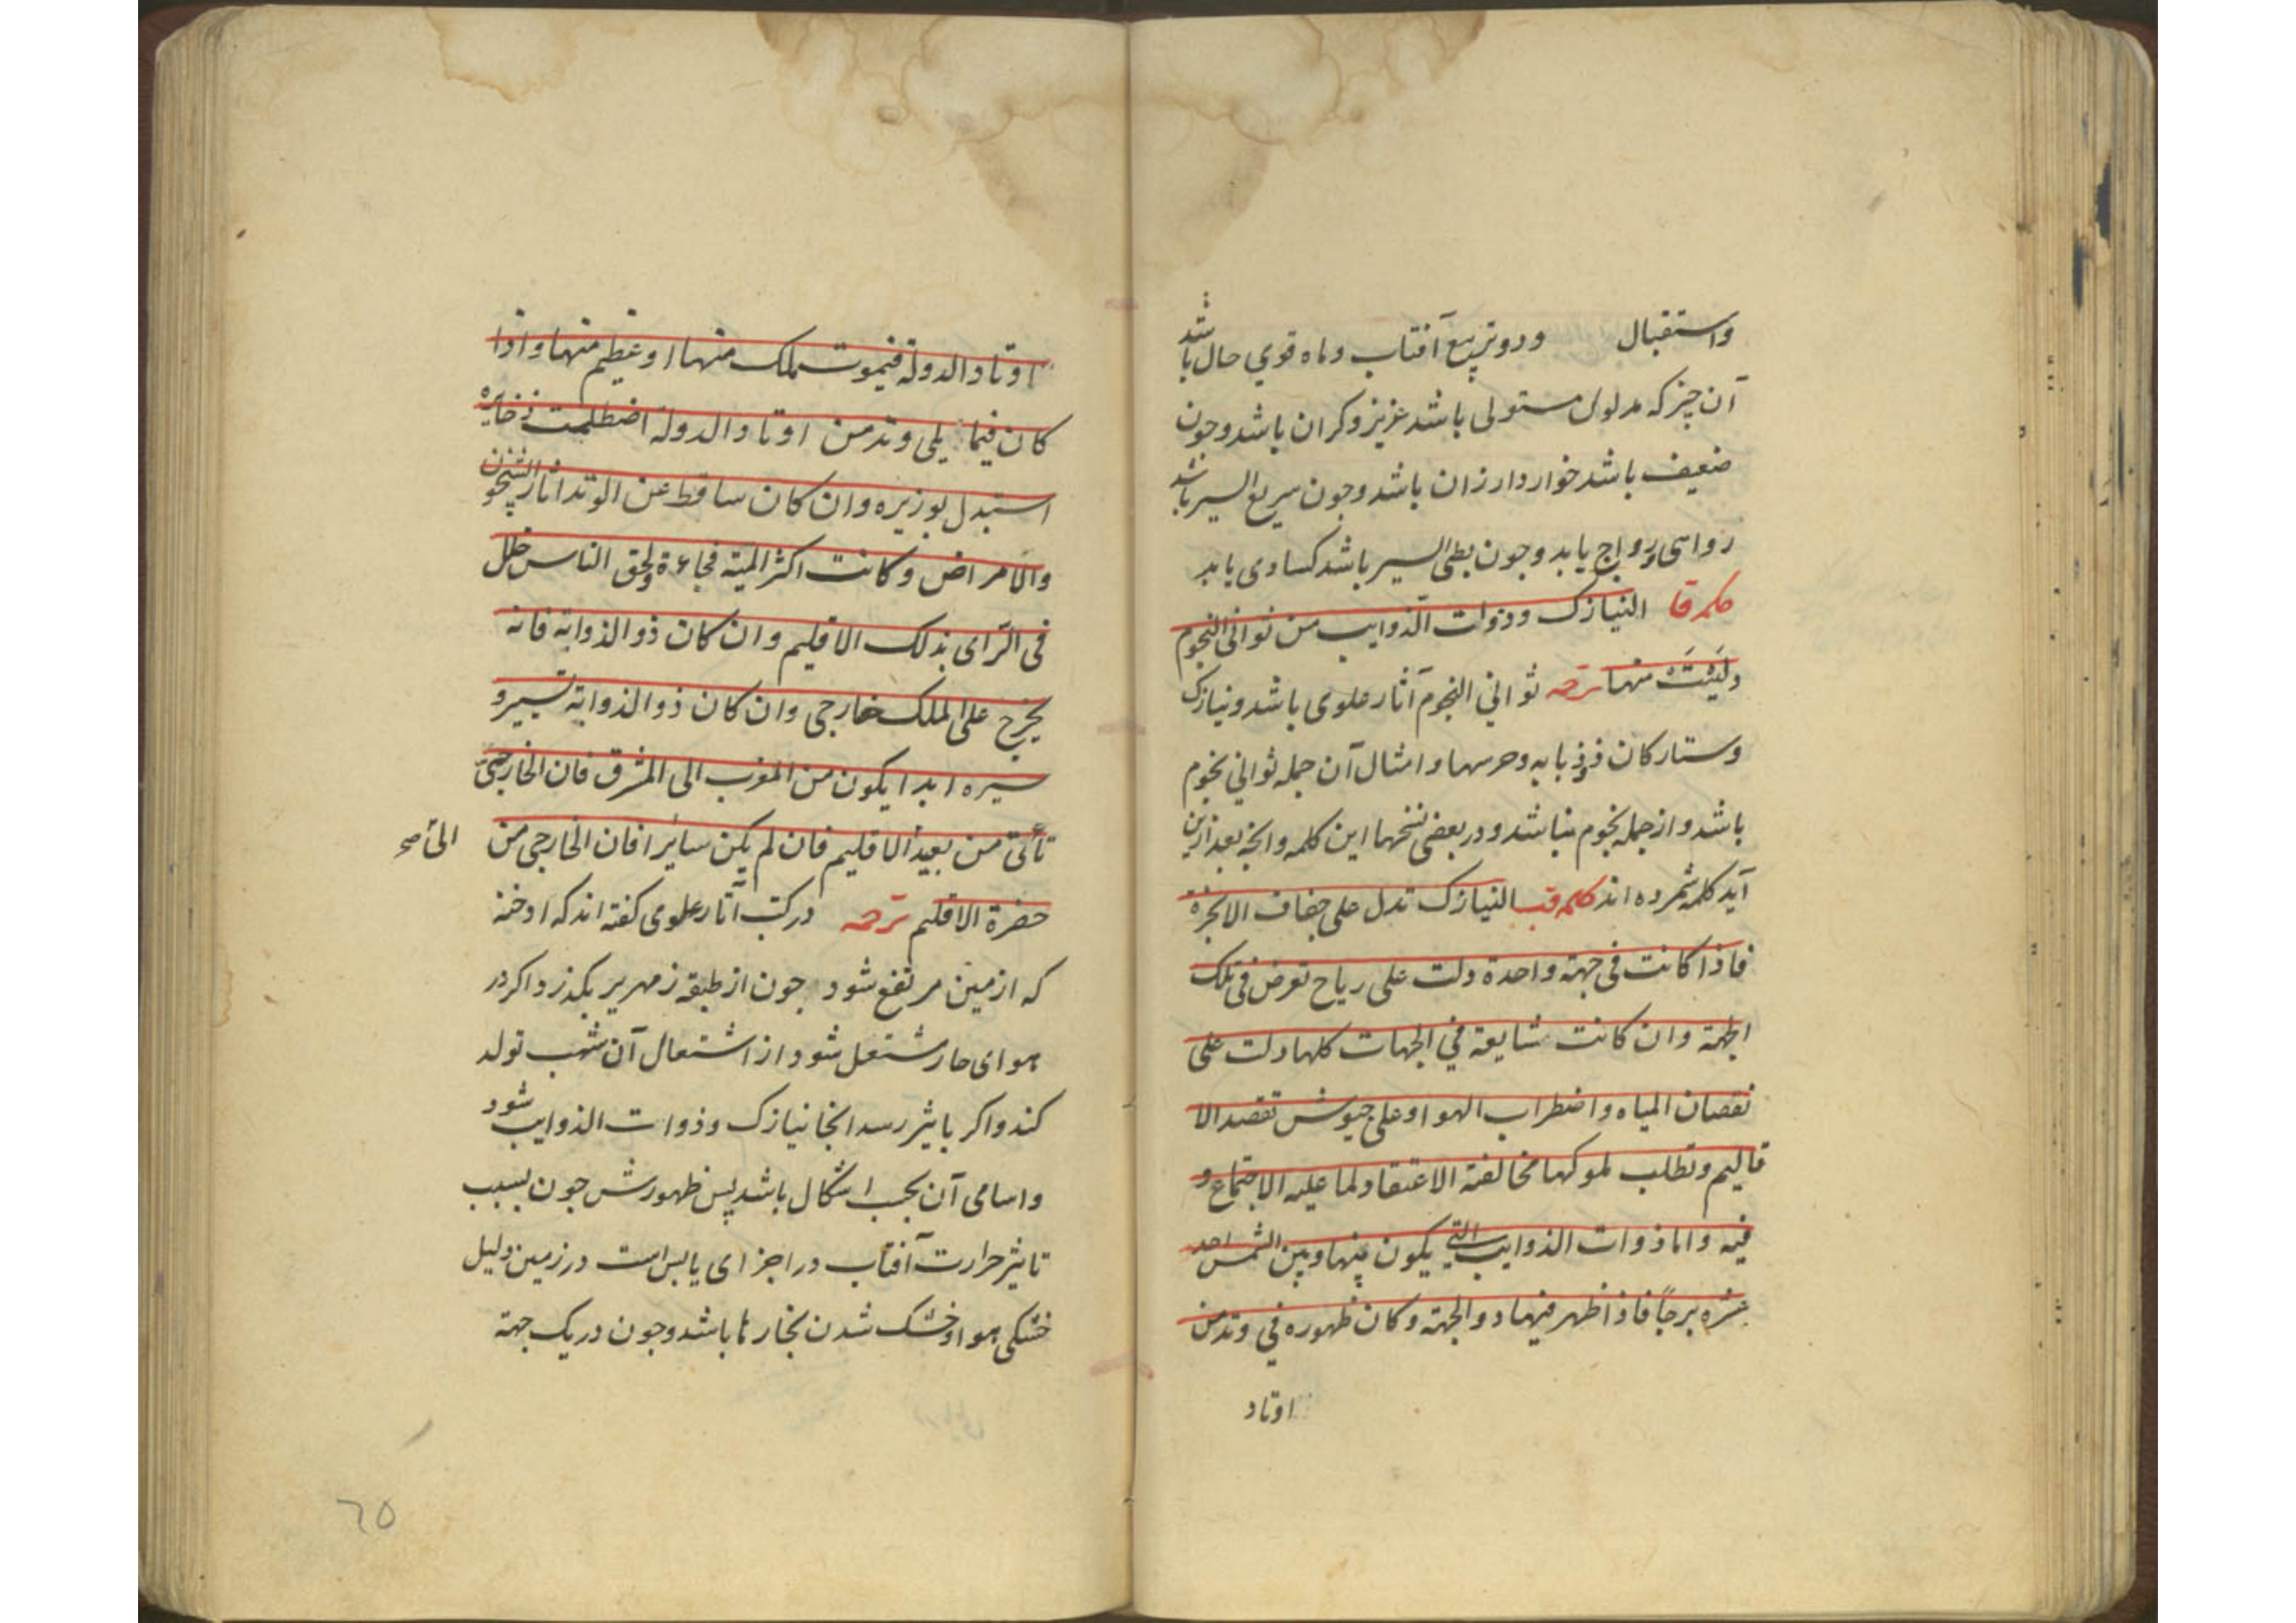 واستقبال ودو تربیع آفتاب وماه قوي حال باشد
آن چیز که مدلول مستولی باشد عزیز وکران باشد وجون
ضعیف باشد خوار وارزان باشد وجون سریع السیر باشد
روایی ورواج یابد وجون بطی السیر باشد کسادی یابد
کلمه قا النیازک وذوات الذوایب من ثوانی النجوم
ولیست منها ترجمه ثواني النجوم آثار علوی باشد ونیازک
وستارکان ذو ذبابه وحربها وامثال آن جمله ثواني نجوم
باشد واز جمله نجوم نباشد ودر بعضی نسخها این کلمه وانجه بعد ازین
آید کلمه شمرده اند کلمه قب النیازک تدل علی جفاف الابخرة
فاذا کانت فی جهة واحدة دلت علی ریاح تعرض فی تلک
الجهة وان کانت شایعة في الجهات کلها دلت علی
نقصان المیاه واضطراب الهوا وعلی جیوش تقصد الا
قالیم وتطلب ملوکها مخالفة الاعتقاد لما علیه الاجتماع و
فیه واما ذوات الذوایب التی یکون بینها وبین الشمس احد
عشره برجاً فاذا ظهر فیها ذو الجهة وکان ظهوره في وتد من
اوتاد
اوتاد الدولة فیموت ملک منها او عظیم منها واذا
کان فیما یلی وتد من اوتاد الدولة اضطلمت ذخایره
استبدل بوزیره وان کان ساقط عن الوتد اثار الشجون
والامراض وکانت اکثر المیتة فجاءة ولحق الناس خلل
فی الرای بذلک الاقلیم وان کان ذو الذوابة فانه
یخرج علی الملک خارجی وان کان ذو الذوابة تسیر و
سیره ابدا یکون من المغرب الی المشرق فان الخارجی
تأتی من بعید الاقلیم فان لم یکن سائرا فان الخارجی من
حضرة الاقلیم ترجمه در کتب آثار علوی کفته اند که ادخنه
که از زمین مرتفع شود جون از طبقه زمهریر بکذرد اکر در
هوای حار مشتعل شود از اشتعال آن شهب تولد
کند واکر باثیر رسد انجا نیازک وذوات الذوایب شود
واسامی آن بحسب اشکال باشد پس ظهورش جون بسبب
تاثیر حرارت آفتاب در اجزای یابس است در زمین دلیل
خشکی هوا وخشک شدن بخارها باشد وجون در یک جهة
٦٥